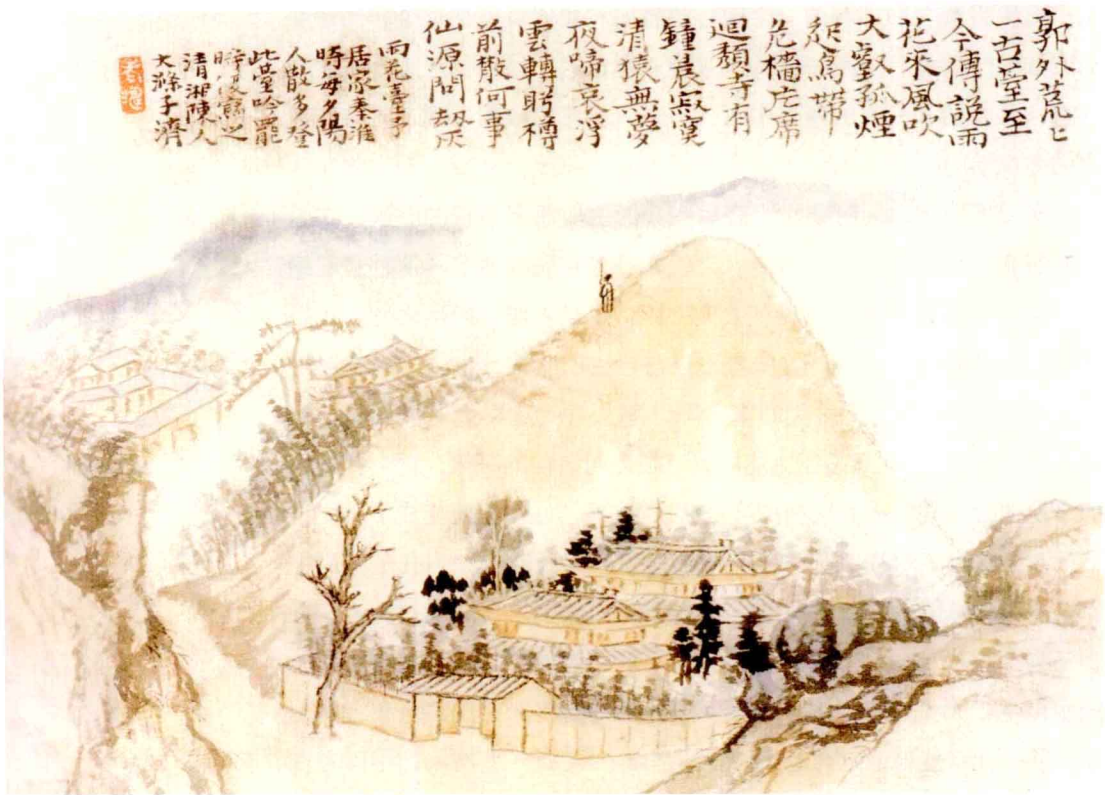 郭外荒〻
一古臺至
今傳說雨
花來風吹
大壑孤煙
絕鳥帶
危檣片席
迴頹寺有
鐘晨寂寞
清猿無夢
夜啼哀浮
雲轉眄樽
前散何事
仙源問劫灰
雨花臺予
居家秦淮
時每夕陽
人散多登
此臺吟罷
時復寫之
清湘陳人
大滌子濟